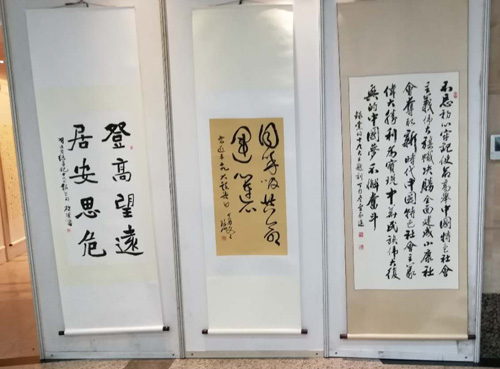 登高望遠
居安思危
同呼吸共命
運連心
不忘初心牢記使命高舉中國特色社會
主義偉大旗幟決勝全面建成小康社
會奪取新時代中國特色社會主義
偉大勝利為實現中華民族偉大復
興的中國夢不懈奮斗
錄黨的十九大主題